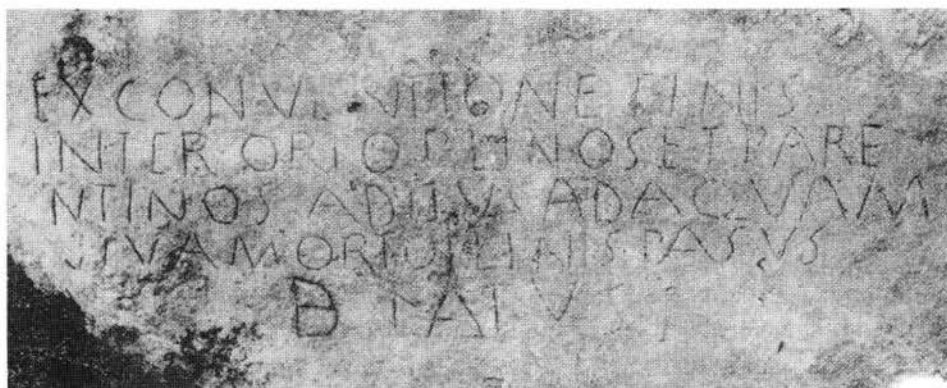 EX CONVENTIONE FINIS
INTER ORTOPLINOS ET PARE
NTINOS ADITVS AD AQVAM
VIVAM ORTOPLINIS PASVS
D LATV